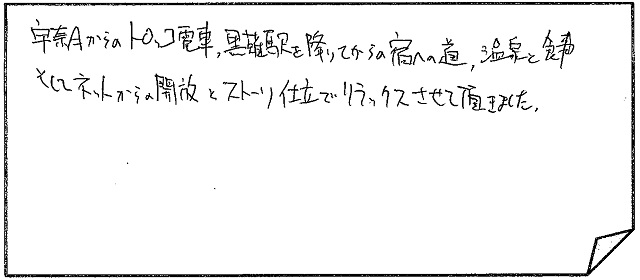 宇奈月からのトロッコ電車,黒薙駅を降りてからの宿への道,温泉と食事
そしてネットからの開放とストーリ仕立でリラックスさせて頂きました。